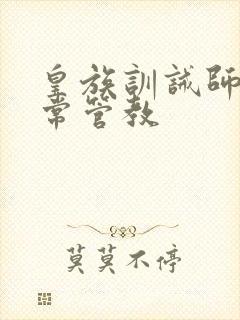 皇族訓誡師
常管教
莫莫不停